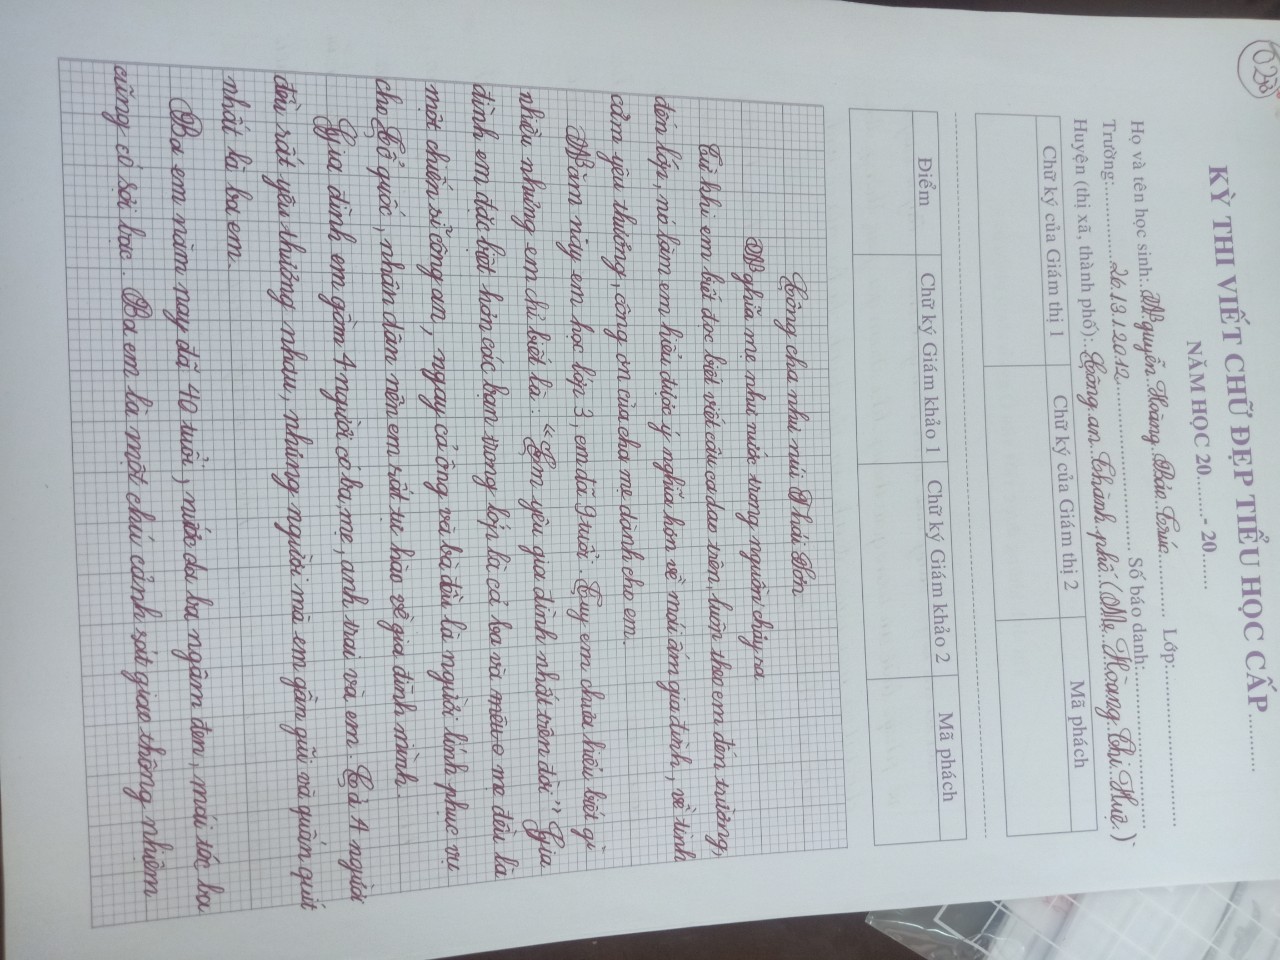 028
KỲ THI VIẾT CHỮ ĐẸP TIỂU HỌC CẤP..........
NĂM HỌC 20........- 20......
Họ và tên học sinh: Nguyễn Hoàng Bảo Trúc............ Lớp:........................
Trường:............26.13.1.2012........................ Số báo danh:........................
Huyện (thị xã, thành phố): Công an Thành phố. (Mẹ Hoàng Thị Huệ.)
Chữ ký của Giám thị 1 Chữ ký của Giám thị 2 Mã phách
Điểm Chữ ký Giám khảo 1 Chữ ký Giám khảo 2 Mã phách
Công cha như núi Thái Sơn
Nghĩa mẹ như nước trong nguồn chảy ra
Từ khi em biết đọc biết viết câu ca dao trên luôn theo em đến trường,
đến lớp, nó làm em hiểu được ý nghĩa hơn về mái ấm gia đình, về tình
cảm yêu thương, công ơn của cha mẹ dành cho em.
Năm nay em học lớp 3, em đã 9 tuổi. Tuy em chưa hiểu biết gì
nhiều nhưng em chỉ biết là: “Em yêu gia đình nhất trên đời” Gia
đình em đặc biệt hơn các bạn trong lớp là cả ba và mẹ đều là
một chiến sĩ công an, ngay cả ông và bà đều là người lính phục vụ
cho Tổ quốc, nhân dân nên em rất tự hào về gia đình mình.
Gia đình em gồm 4 người có ba, mẹ, anh trai và em. Cả 4 người
đều rất yêu thương nhau, nhưng người mà em gần gũi và quấn quýt
nhất là ba em.
Ba em năm nay đã 40 tuổi, nước da ba ngăm đen, mái tóc ba
cũng có sợi bạc. Ba em là một chú cảnh sát giao thông nhiệm